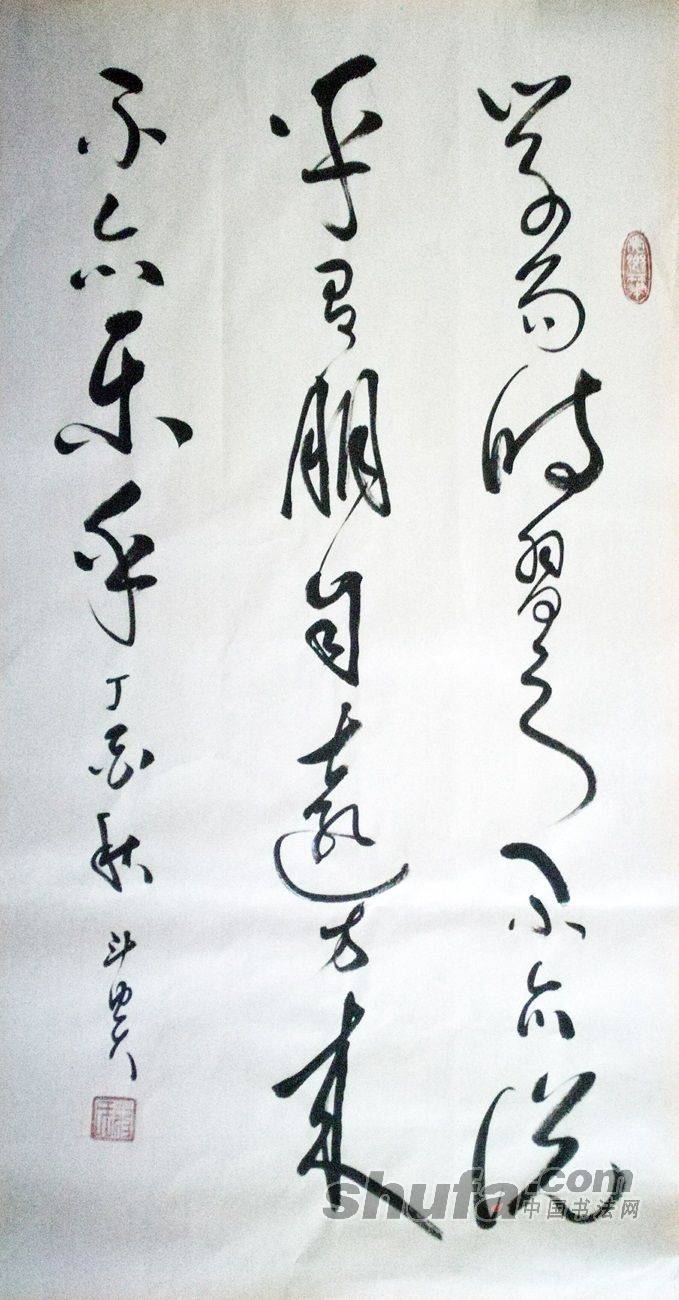 学而时习之不亦说
乎有朋自遠方来
不亦乐乎丁酉秋斗
shufa.com
中国书法网